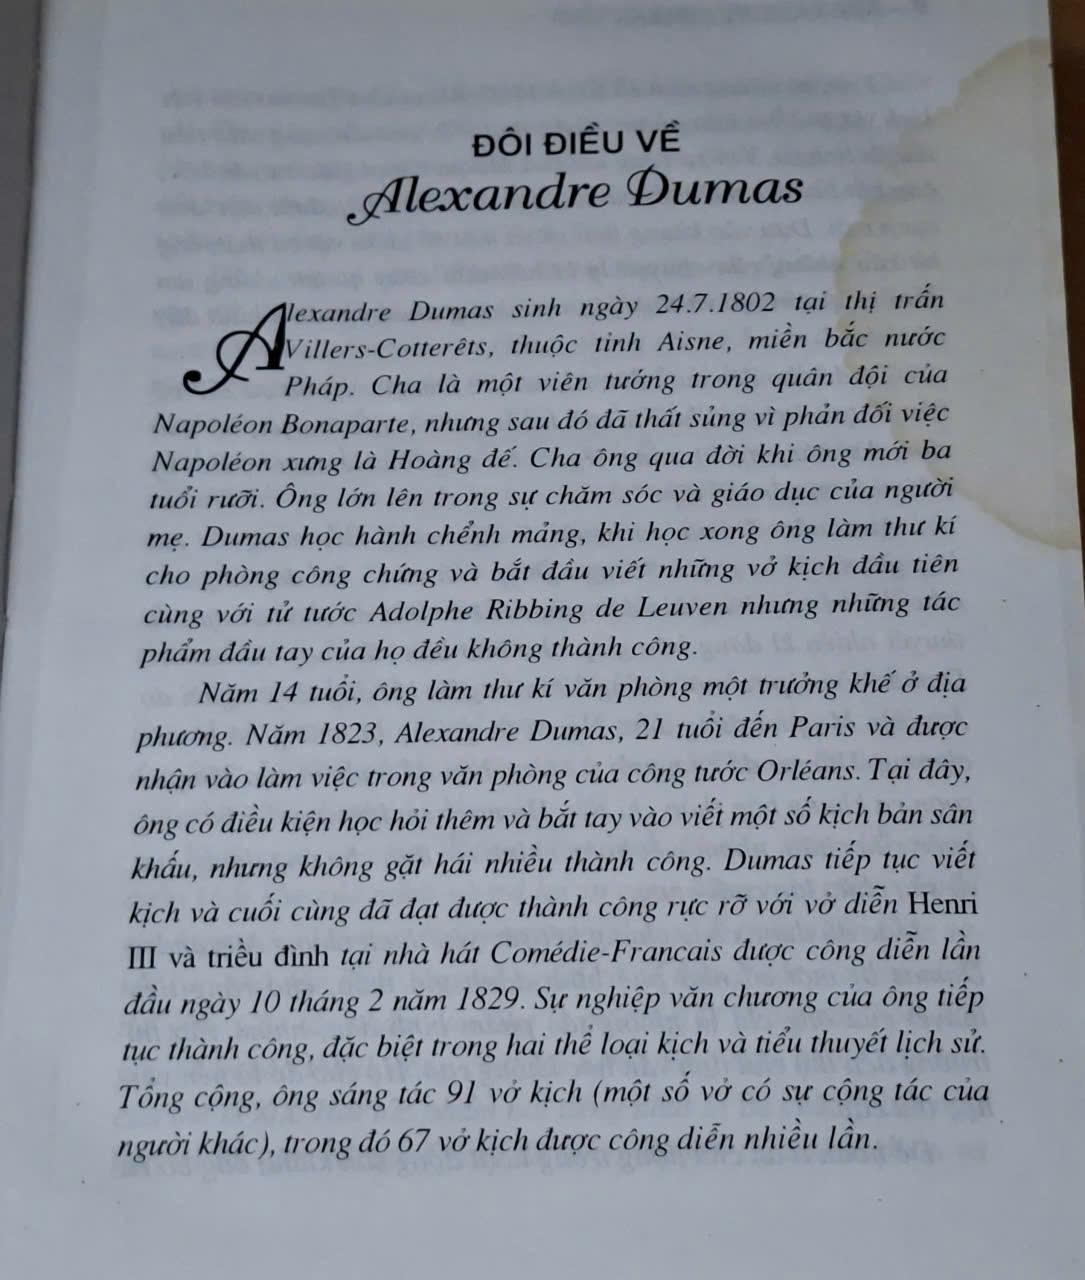 ĐÔI ĐIỀU VỀ
Alexandre Dumas
Alexandre Dumas sinh ngày 24.7.1802 tại thị trấn
Villers-Cotterêts, thuộc tỉnh Aisne, miền bắc nước
Pháp. Cha là một viên tướng trong quân đội của
Napoléon Bonaparte, nhưng sau đó đã thất sủng vì phản đối việc
Napoléon xưng là Hoàng đế. Cha ông qua đời khi ông mới ba
tuổi rưỡi. Ông lớn lên trong sự chăm sóc và giáo dục của người
mẹ. Dumas học hành chểnh mảng, khi học xong ông làm thư kí
cho phòng công chứng và bắt đầu viết những vở kịch đầu tiên
cùng với tử tước Adolphe Ribbing de Leuven nhưng những tác
phẩm đầu tay của họ đều không thành công.
Năm 14 tuổi, ông làm thư kí văn phòng một trưởng khế ở địa
phương. Năm 1823, Alexandre Dumas, 21 tuổi đến Paris và được
nhận vào làm việc trong văn phòng của công tước Orléans. Tại đây,
ông có điều kiện học hỏi thêm và bắt tay vào viết một số kịch bản sân
khấu, nhưng không gặt hái nhiều thành công. Dumas tiếp tục viết
kịch và cuối cùng đã đạt được thành công rực rỡ với vở diễn Henri
III và triều đình tại nhà hát Comédie-Francais được công diễn lần
đầu ngày 10 tháng 2 năm 1829. Sự nghiệp văn chương của ông tiếp
tục thành công, đặc biệt trong hai thể loại kịch và tiểu thuyết lịch sử.
Tổng cộng, ông sáng tác 91 vở kịch (một số vở có sự cộng tác của
người khác), trong đó 67 vở kịch được công diễn nhiều lần.